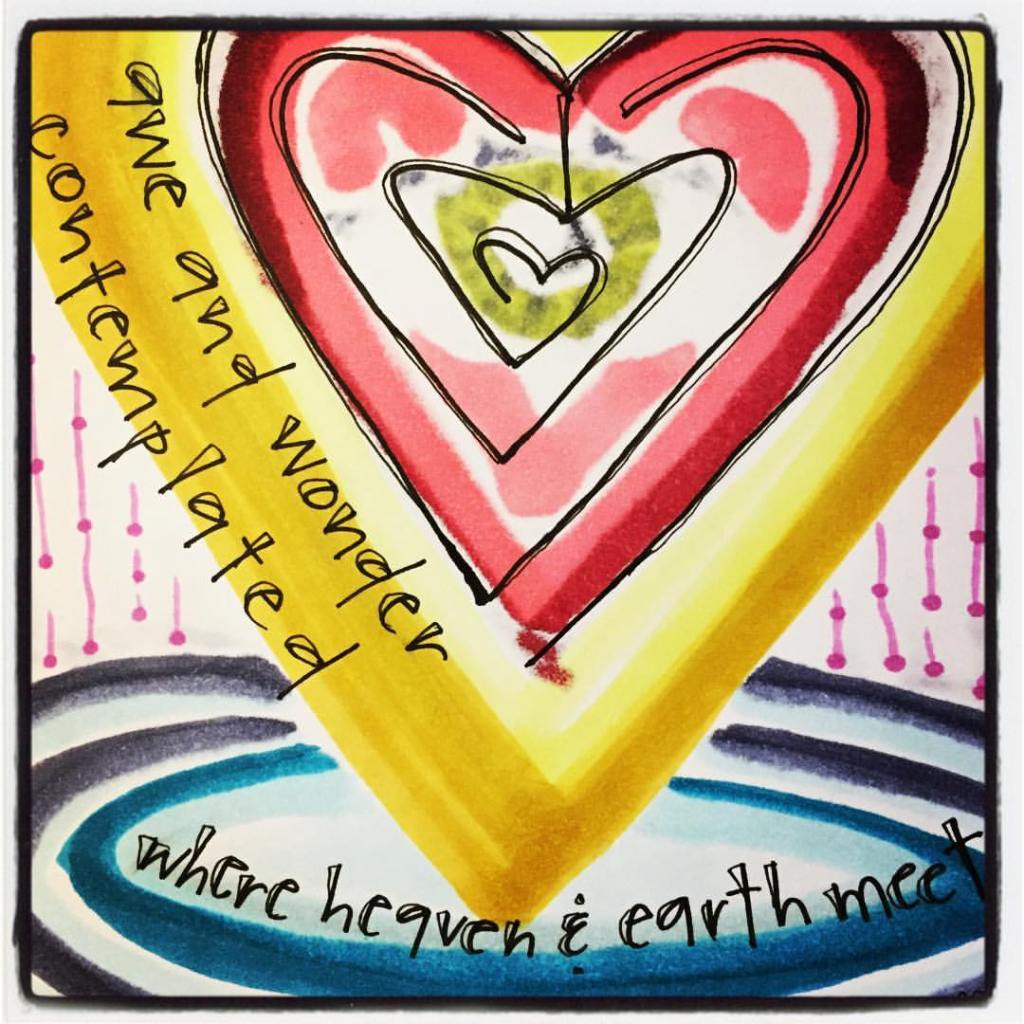 awe and wonder
contemplated
where heaven & earth meet